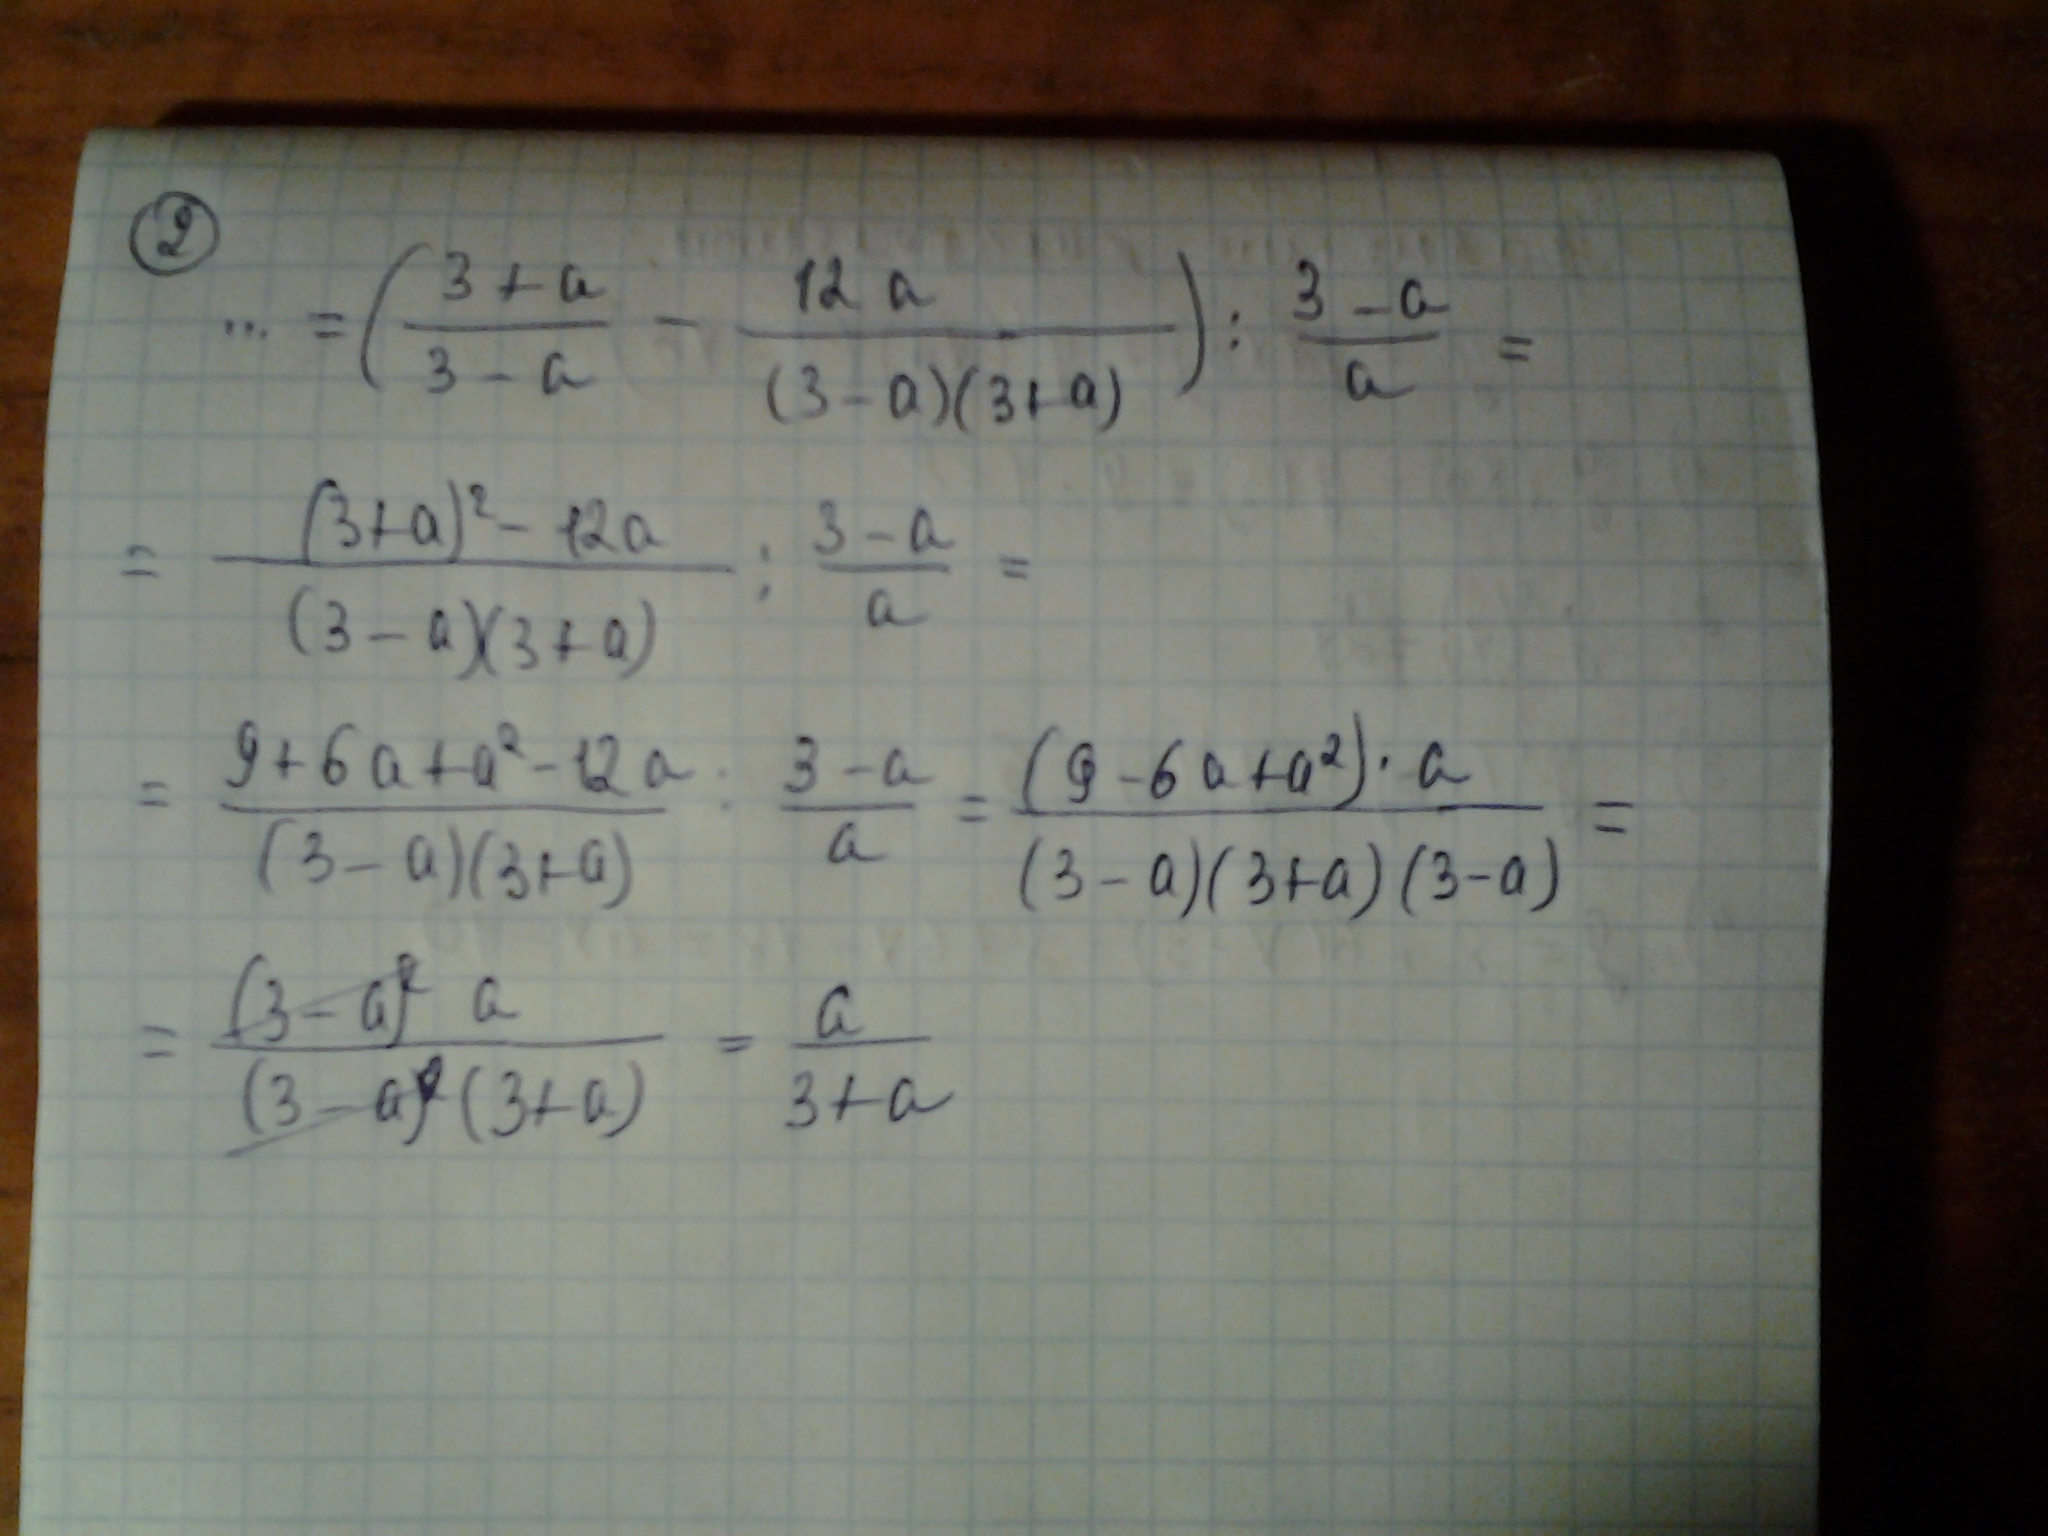 2
... = ( (3+a)/(3-a) - 12a/((3-a)(3+a)) ) : (3-a)/a =
= ((3+a)² - 12a)/((3-a)(3+a)) : (3-a)/a =
= (9+6a+a²-12a)/((3-a)(3+a)) : (3-a)/a = ((9-6a+a²)·a)/((3-a)(3+a)(3-a)) =
= ((3-a)² a)/((3-a)²(3+a)) = a/(3+a)